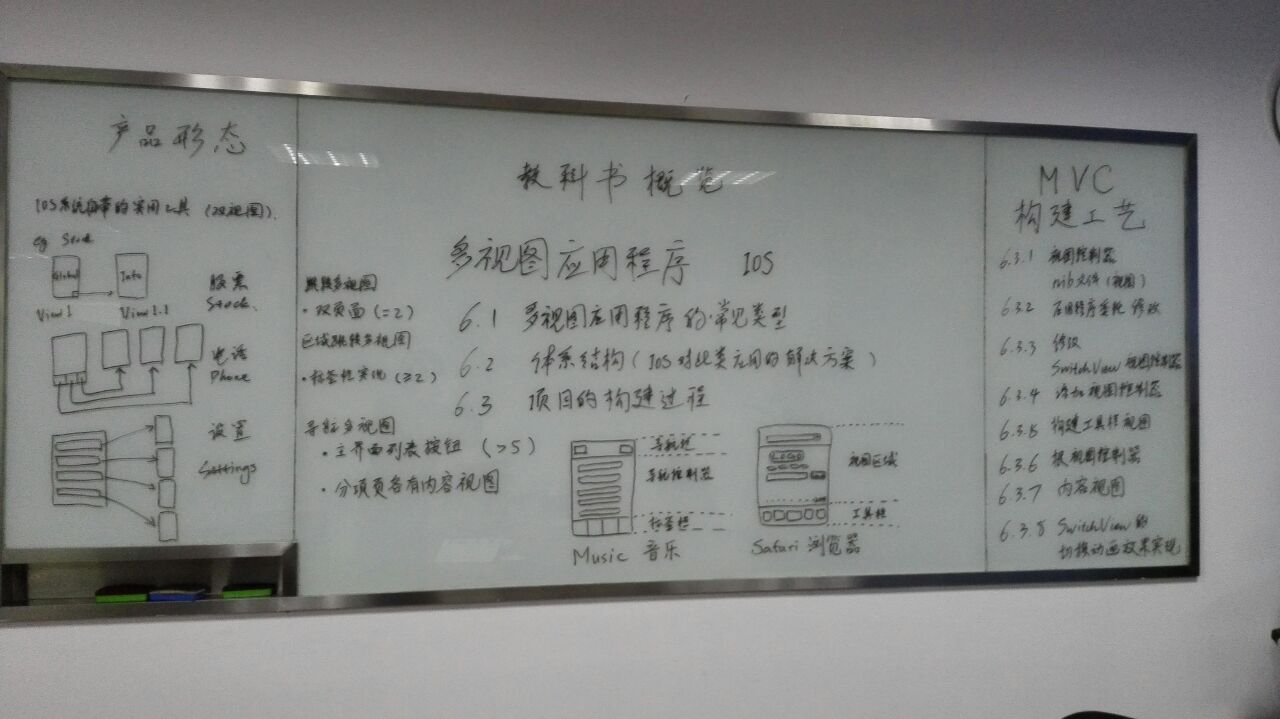 产品形态
IOS系统自带的实用工具（双视图）.
eg Stock
Global
Info
View 1
View 1.1
股票
Stock.
电话
Phone
设置
Settings
教科书概览
多视图应用程序 IOS
跳转多视图
· 双页面（=2）
区域跳转多视图
· 标签栏实现（≥2）
导航多视图
· 主界面列表按钮（>5）
· 分项页各有内容视图
6.1 多视图应用程序的常见类型
6.2 体系结构（IOS对此类应用的解决方案）
6.3 项目的构建过程
导航栏
导航控制器
标签栏
Music 音乐
LOGO
视图区域
工具栏
Safari 浏览器
MVC
构建工艺
6.3.1 视图控制器
nib文件（视图）
6.3.2 应用程序委托 修改
6.3.3 修改
SwitchView 视图控制器
6.3.4 添加视图控制器
6.3.5 构建工具栏视图
6.3.6 根视图控制器
6.3.7 内容视图
6.3.8 SwitchView 的
切换动画效果实现